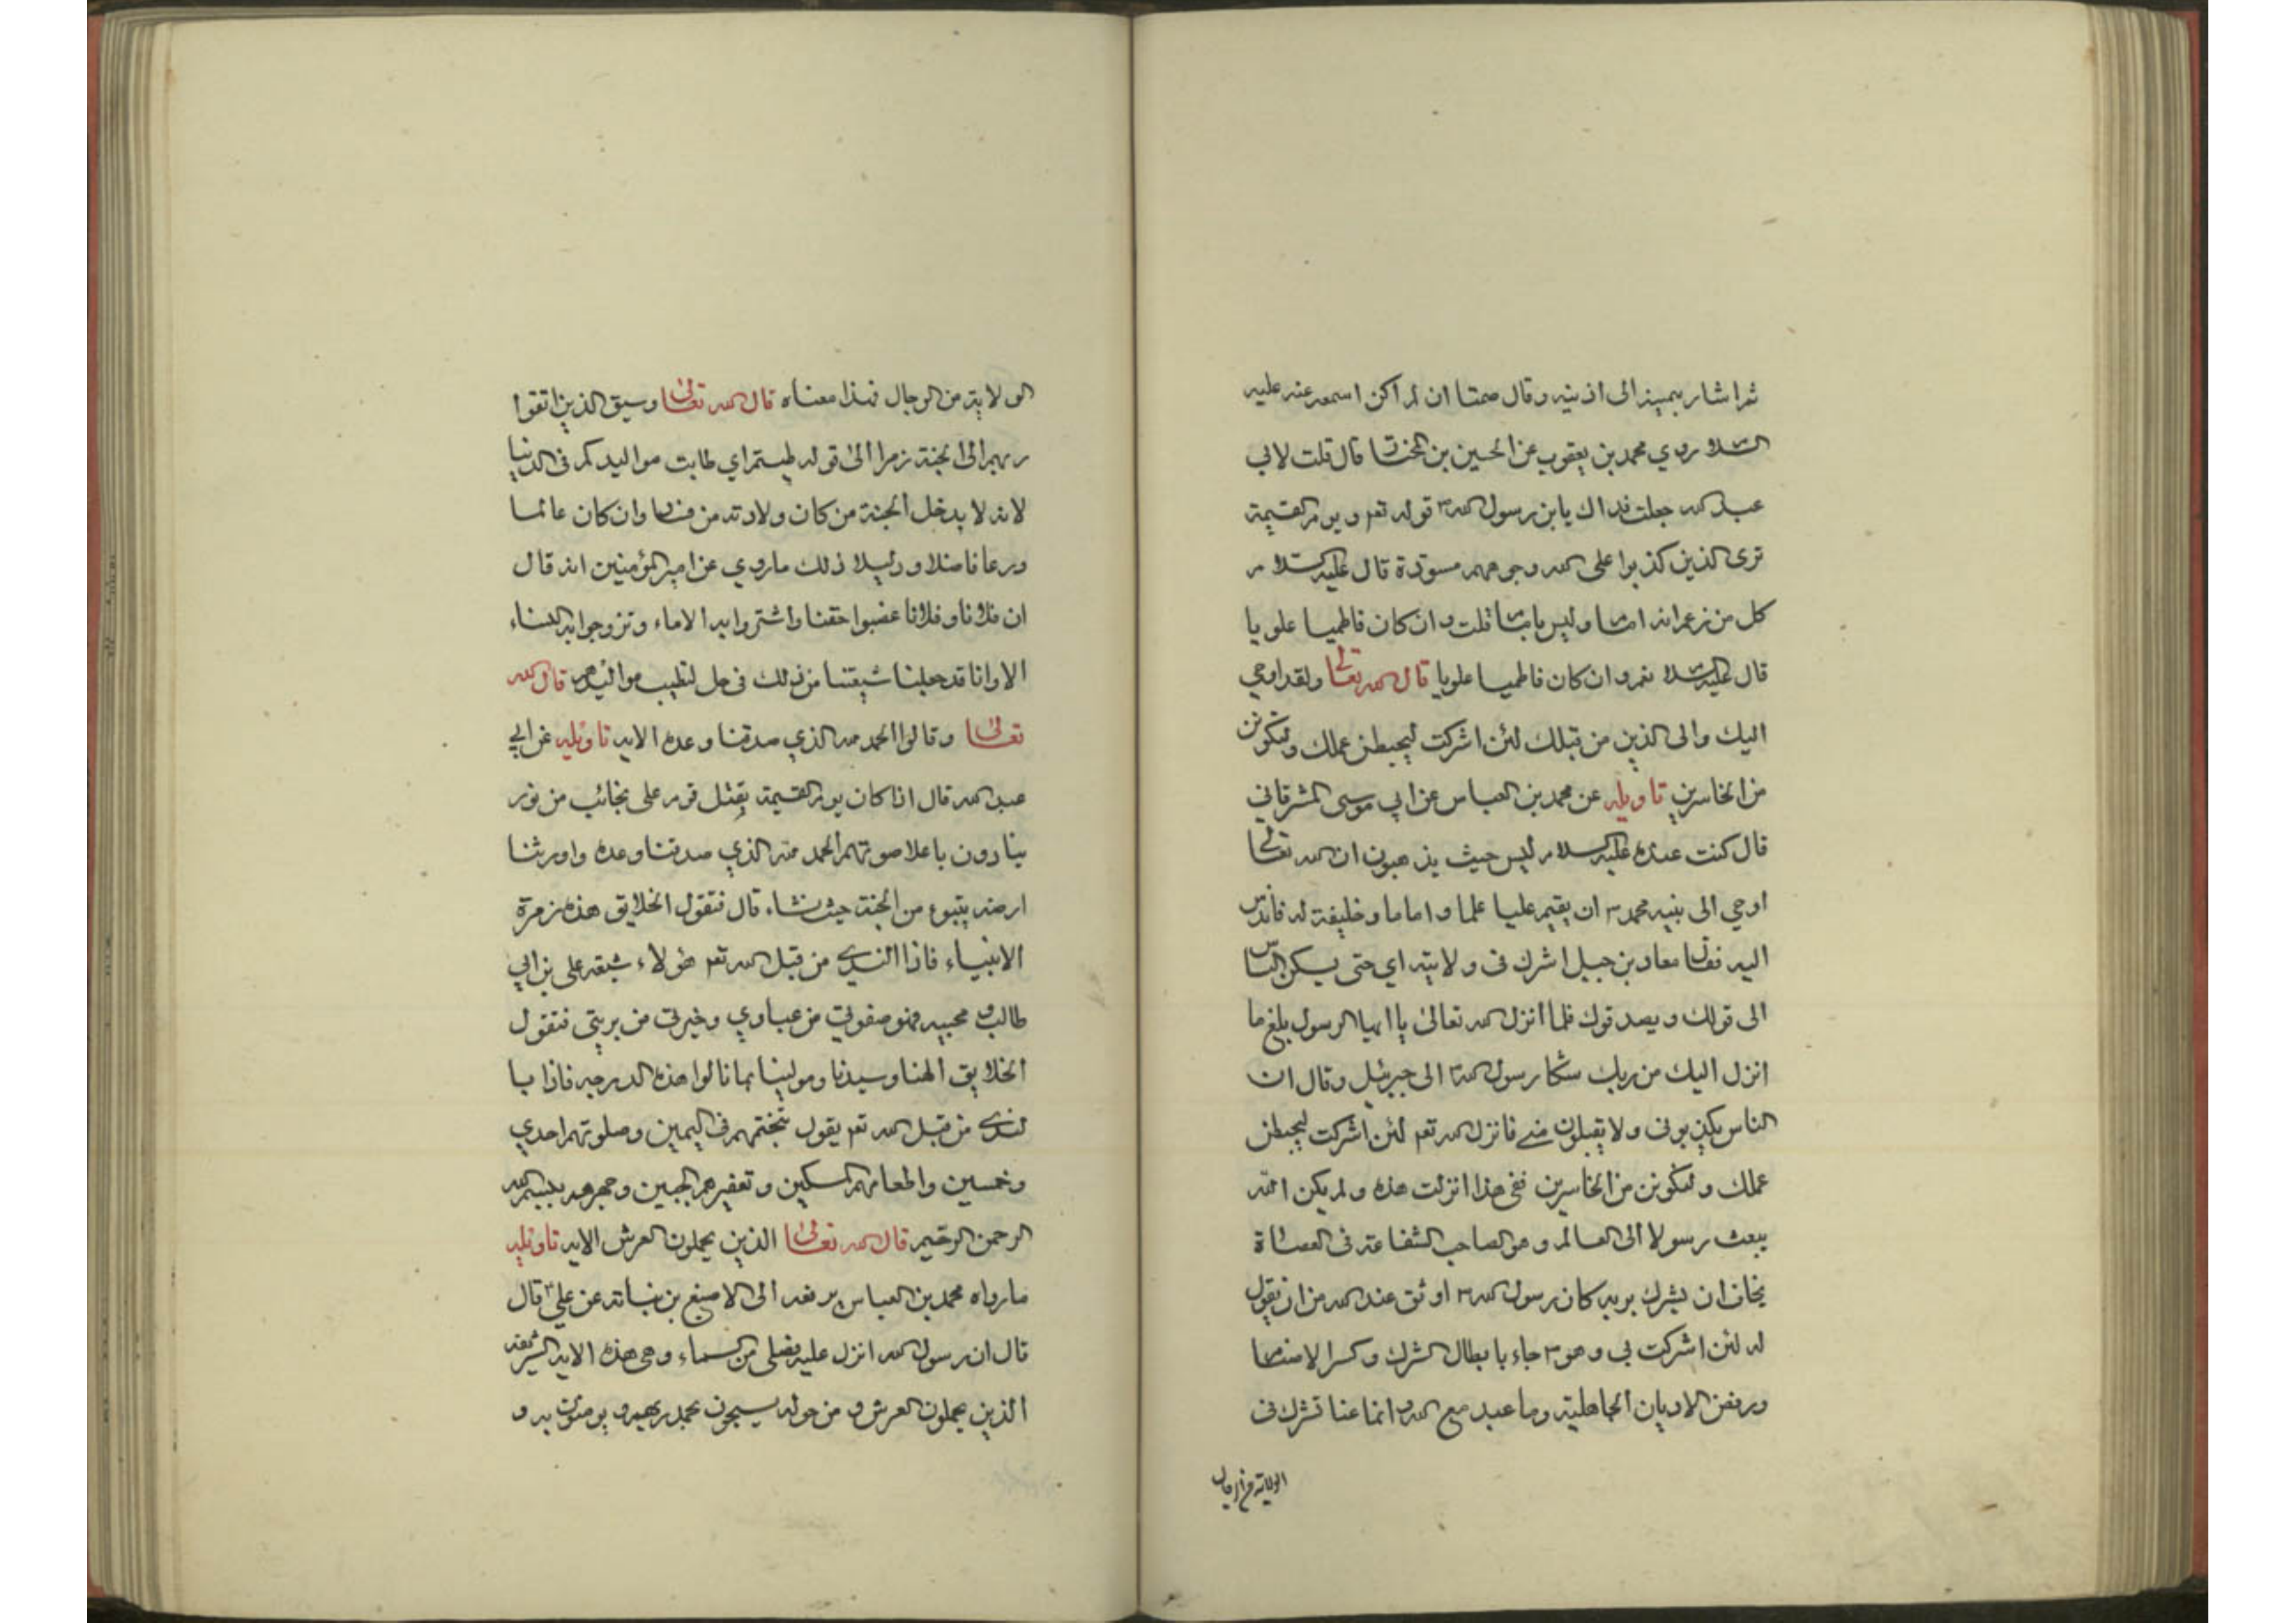 ثم اشار بيمينه الى اذنيه وقال صمتا ان لم اكن اسمعه عنه عليه
السلام روي محمد بن يعقوب عن الحسين بن المختار قال قلت لابي
عبد الله جعلت فداك يا بن رسول الله قوله تعم ويوم القيمة
ترى الذين كذبوا على الله وجوههم مسودة قال عليه السلام
كل من زعم انه امام وليس بامام قلت وان كان فاطميا علويا
قال عليه السلام نعم وان كان فاطميا علويا قال الله تعالى ولقد اوحي
اليك والى الذين من قبلك لئن اشركت ليحبطن عملك ولتكونن
من الخاسرين تاويله عن محمد بن العباس عن ابي موسى المشرقاني
قال كنت عنده عليه السلام ليس حيث يذهبون ان الله تعالى
اوحي الى نبيه محمد ان يقيم عليا علما واماما وخليفة له فاندس
اليه فقال معاد بن جبل اشرك في ولايته اي حتى يسكن الناس
الى قولك ويصدقوك فلما انزل الله تعالى يا ايها الرسول بلغ ما
انزل اليك من ربك شكا رسول الله الى جبرئيل وقال ان
الناس يكذبوني ولا يقبلون مني فانزل الله تعم لئن اشركت ليحبطن
عملك ولتكونن من الخاسرين ففي هذا انزلت هذه ولم يكن الله
يبعث رسولا الى العالم وهو الصاحب الشفاعته في العصاة
يخاف ان يشرك بربه كان رسول الله اوثق عند الله من ان يقول
له لئن اشركت بي وهو جاء بابطال الشرك وكسر الاصنام
ورفض الاديان الجاهلية وما عبد مع الله وانما عنا تشرك في
الولاية من الرجال
الولاية من الرجال فهذا معناه قال الله تعالى وسيق الذين اتقوا
ربهم الى الجنة زمرا الى قوله طبتم اي طابت مواليدكم في الدنيا
لانه لا يدخل الجنة من كان ولادته من وان كان عالما
ورعا فاضلا ودليلا ذلك ما روي عن امير المؤمنين انه قال
ان فلانا وفلانا غصبوا حقنا واشتروا به الاماء وتزوجوا به النساء
الا وانا قد جعلنا شيعتنا من ذلك في حل لتطيب مواليدهم قال الله
تعالى وقالوا الحمد لله الذي صدقنا وعده الايه تاويله عن ابي
عبد الله قال اذا كان يوم القيمة يقبل قوم على نجائب من نور
ينادون باعلا صوتهم الحمد لله الذي صدقنا وعده واورثنا
ارضه يتبوء من الجنة حيث نشاء قال فتقول الخلايق هذه زمرة
الانبياء فاذا الندي من قبل الله تعم هؤلاء شيعة علي بن ابي
طالب ومحبيه فهو صفوتي من عبادي وخيرتي من بريتي فتقول
الخلايق الهنا وسيدنا ومولينا بما نالوا هذه الدرجه فاذا يا
لندي من قبل الله تعم يقول بتختمهم في اليمين وصلوتهم احدي
وخمسين واطعامهم المسكين وتعفيرهم الجبين وجهرهم ببسم الله
الرحمن الرحيم قال الله تعالى الذين يحملون العرش الايه تاويله
ما رواه محمد بن العباس يرفعه الى الاصبغ بن نباته عن علي قال
قال ان رسول الله انزل عليه فضلى من السماء وهي هذه الايه الشريفه
الذين يحملون العرش ومن حوله يسبحون بحمد ربهم ويومنون به و